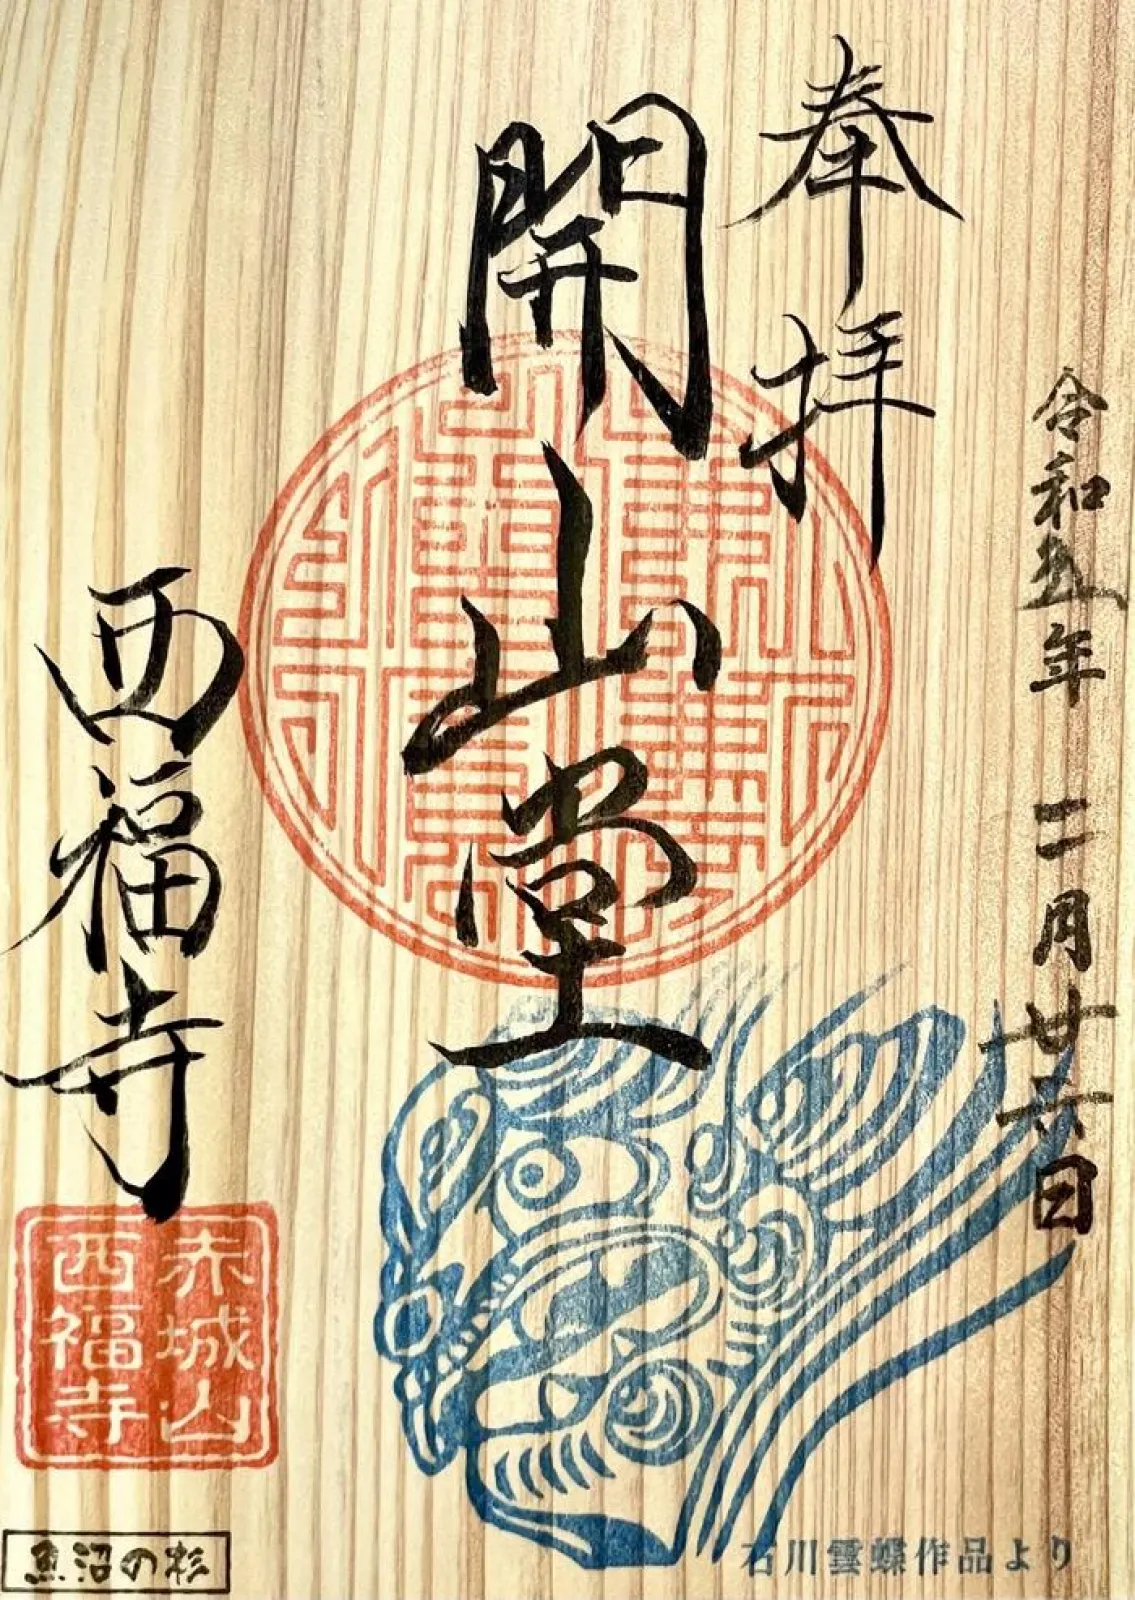 令和五年 二月廿六日
奉拝
開山堂
西福寺
赤城山
西福寺
石川雲蝶作品より
魚沼の杉